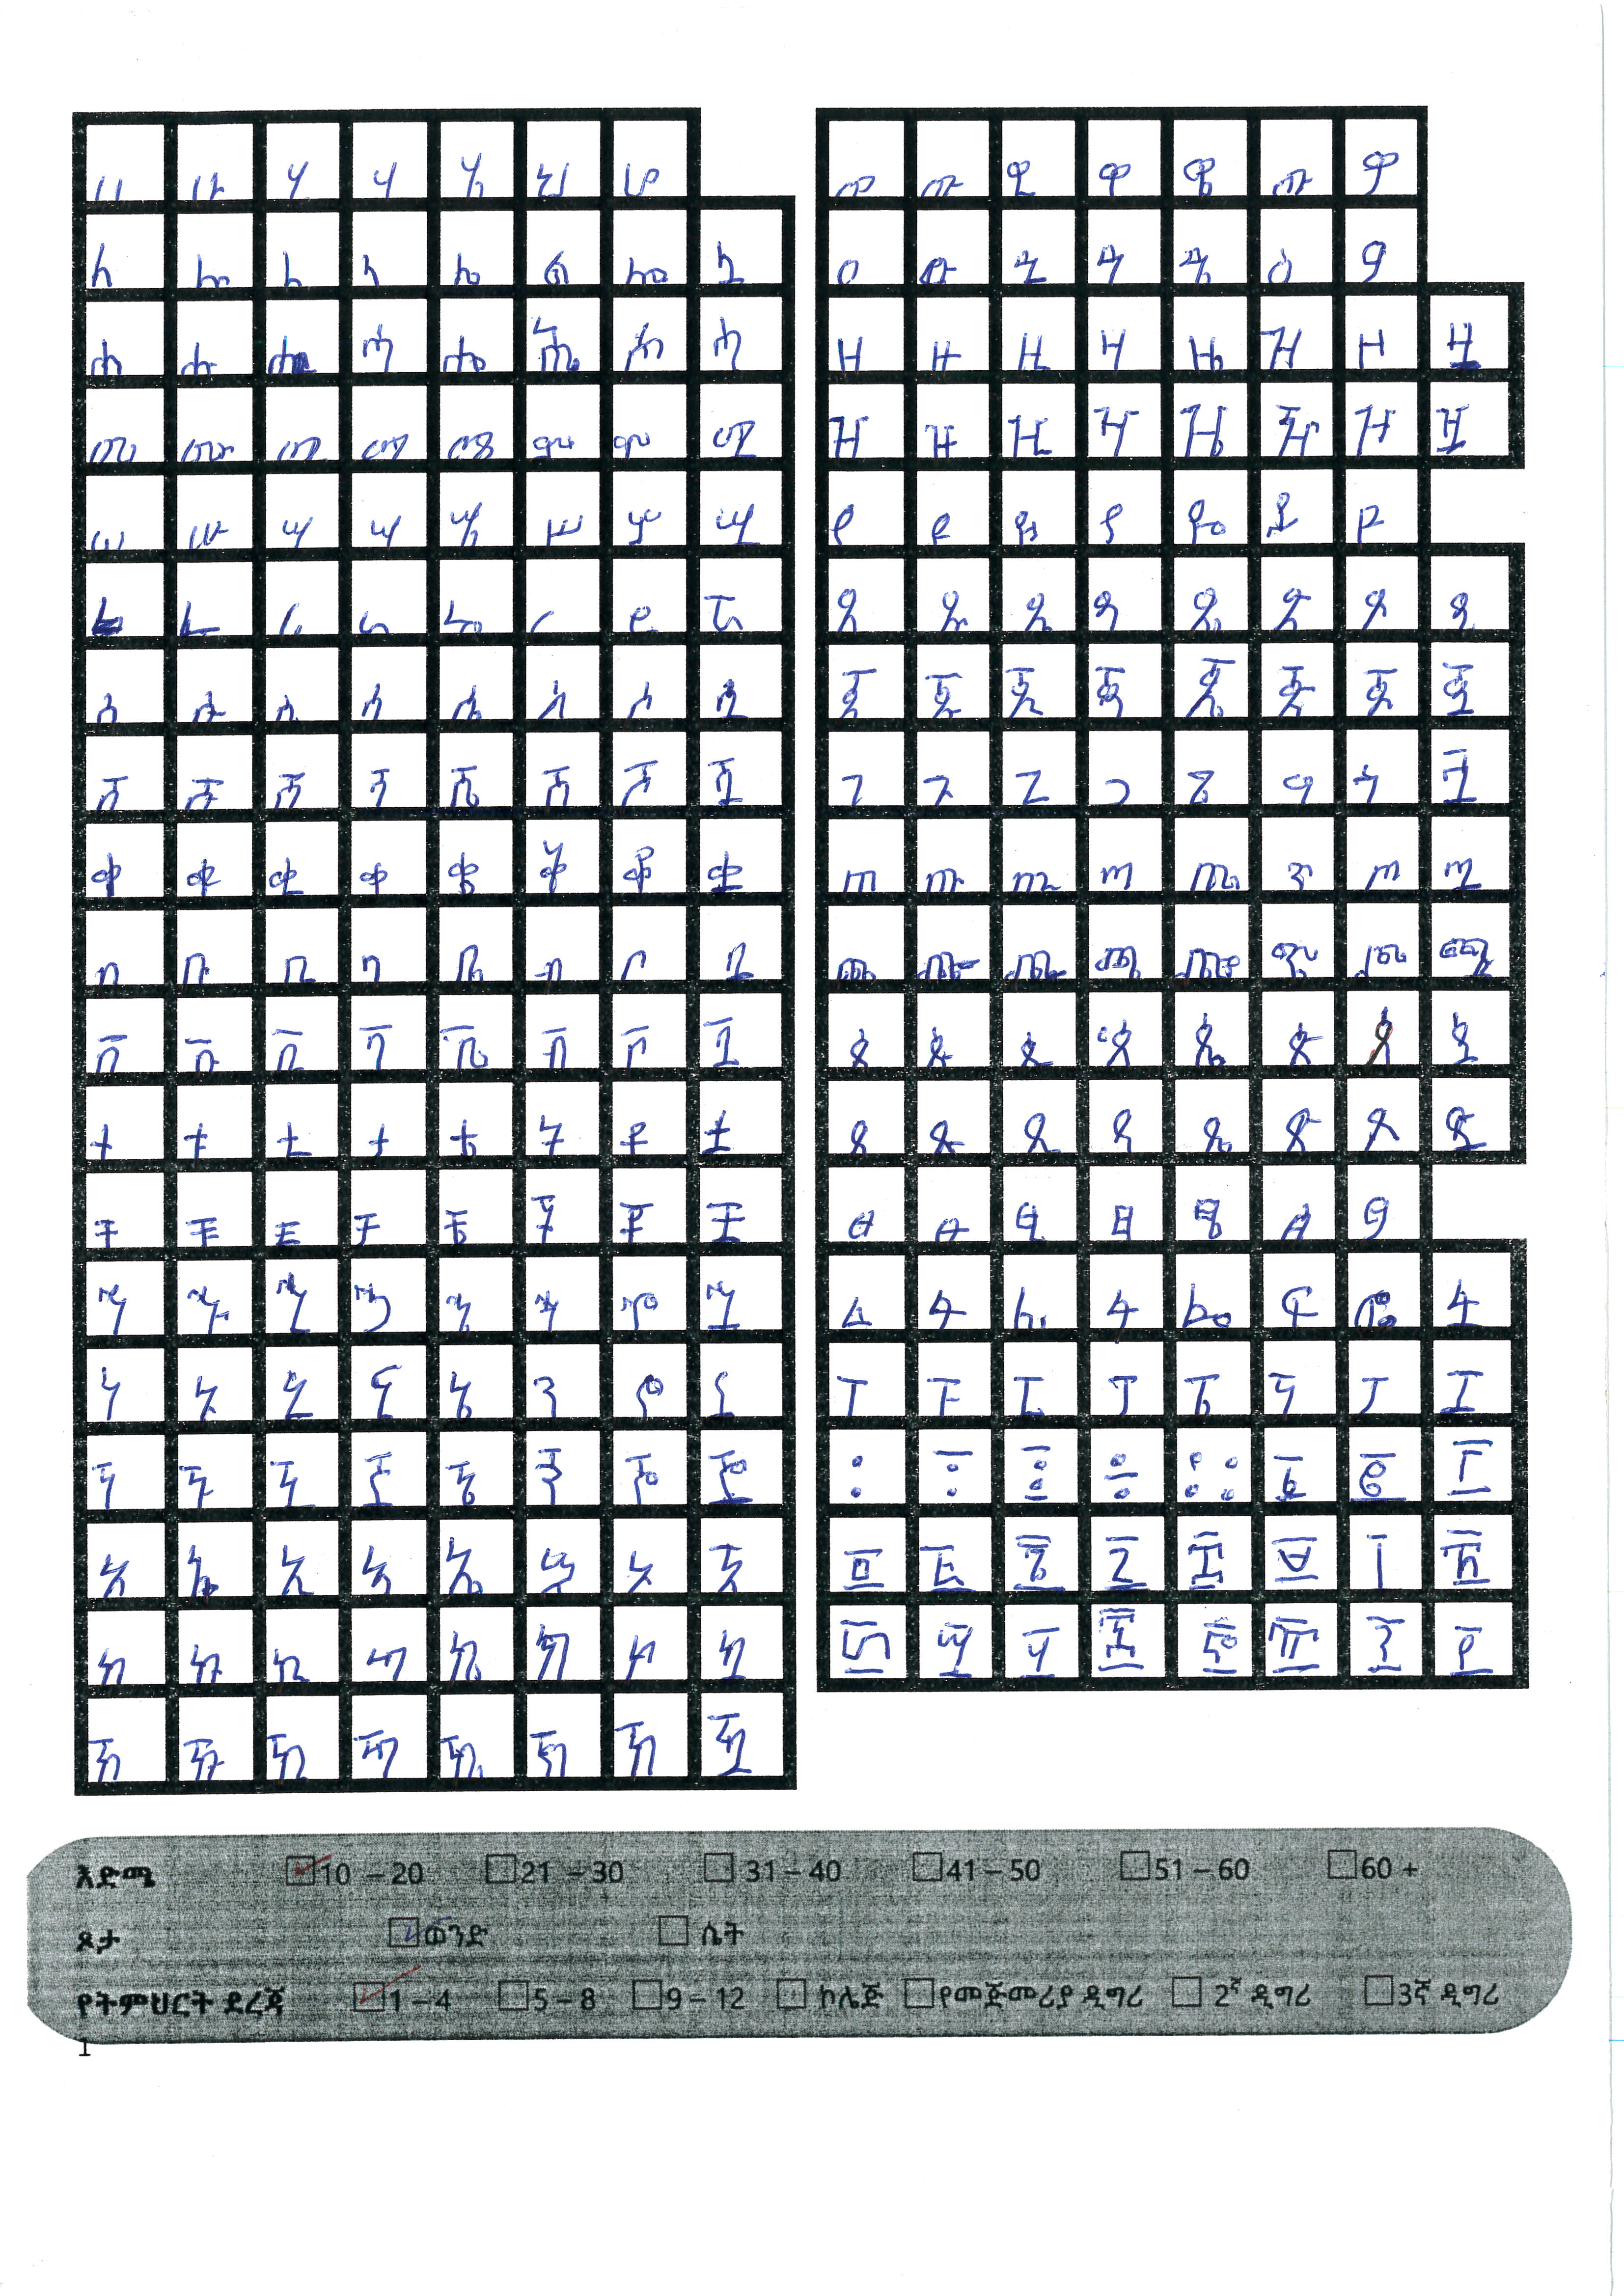 ሀ ሁ ሂ ሃ ሄ ህ ሆ
ለ ሉ ሊ ላ ሌ ል ሎ ሏ
ሐ ሑ ሒ ሓ ሔ ሕ ሖ ሗ
መ ሙ ሚ ማ ሜ ም ሞ ሟ
ሠ ሡ ሢ ሣ ሤ ሥ ሦ ሧ
ረ ሩ ሪ ራ ሬ ር ሮ ሯ
ሰ ሱ ሲ ሳ ሴ ስ ሶ ሷ
ሸ ሹ ሺ ሻ ሼ ሽ ሾ ሿ
ቀ ቁ ቂ ቃ ቄ ቅ ቆ ቋ
በ ቡ ቢ ባ ቤ ብ ቦ ቧ
ቨ ቩ ቪ ቫ ቬ ቭ ቮ ቯ
ተ ቱ ቲ ታ ቴ ት ቶ ቷ
ቸ ቹ ቺ ቻ ቼ ች ቾ ቿ
ኀ ኁ ኂ ኃ ኄ ኅ ኆ ኋ
ነ ኑ ኒ ና ኔ ን ኖ ኗ
ኘ ኙ ኚ ኛ ኜ ኝ ኞ ኟ
አ ኡ ኢ ኣ ኤ እ ኦ ኧ
ከ ኩ ኪ ካ ኬ ክ ኮ ኳ
ኸ ኹ ኺ ኻ ኼ ኽ ኾ ዃ
ወ ዉ ዊ ዋ ዌ ው ዎ
ዐ ዑ ዒ ዓ ዔ ዕ ዖ
ዘ ዙ ዚ ዛ ዜ ዝ ዞ ዟ
ዠ ዡ ዢ ዣ ዤ ዥ ዦ ዧ
የ ዩ ዪ ያ ዬ ይ ዮ
ደ ዱ ዲ ዳ ዴ ድ ዶ ዷ
ጀ ጁ ጂ ጃ ጄ ጅ ጆ ጇ
ገ ጉ ጊ ጋ ጌ ግ ጎ ጓ
ጠ ጡ ጢ ጣ ጤ ጥ ጦ ጧ
ጨ ጩ ጪ ጫ ጬ ጭ ጮ ጯ
ጰ ጱ ጲ ጳ ጴ ጵ ጶ ጷ
ጸ ጹ ጺ ጻ ጼ ጽ ጾ ጿ
ፀ ፁ ፂ ፃ ፄ ፅ ፆ
ፈ ፉ ፊ ፋ ፌ ፍ ፎ ፏ
ፐ ፑ ፒ ፓ ፔ ፕ ፖ ፗ
፩ ፪ ፫
፬ ፭ ፮ ፯ ፰ ፱ ፲ ፳
፴ ፵ ፶ ፷ ፸ ፹ ፺ ፻
እድሜ 10 – 20 21 – 30 31 – 40 41 – 50 51 – 60 60 +
ጾታ ወንድ ሴት
የትምህርት ደረጃ 1 – 4 5 – 8 9 – 12 ኮሌጅ የመጀመሪያ ዲግሪ 2ኛ ዲግሪ 3ኛ ዲግሪ
1